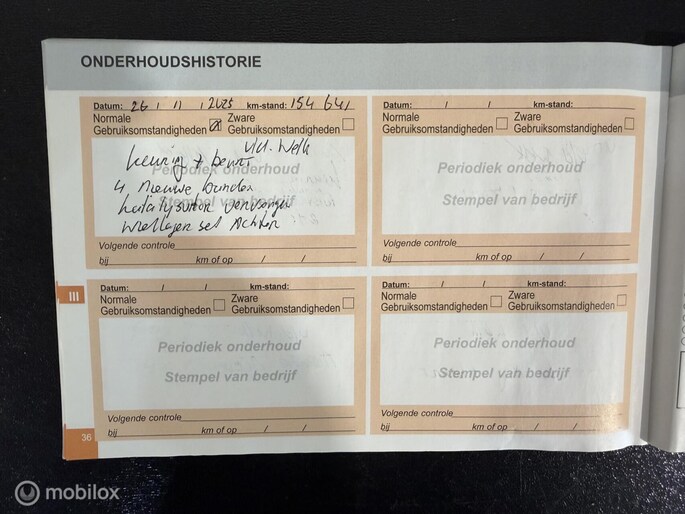 ONDERHOUDSHISTORIE
Datum: 26 / 11 / 2025 km-stand: 154 641
Normale Gebruiksomstandigheden
Zware Gebruiksomstandigheden
keuring + beurt
4 nieuwe banden
katalysator vervangen
wiellagen set Achter
Periodiek onderhoud
Stempel van bedrijf
Volgende controle
bij km of op / /
Datum: / / km-stand:
Normale Gebruiksomstandigheden
Zware Gebruiksomstandigheden
Periodiek onderhoud
Stempel van bedrijf
Volgende controle
bij km of op / /
III
Datum: / / km-stand:
Normale Gebruiksomstandigheden
Zware Gebruiksomstandigheden
Periodiek onderhoud
Stempel van bedrijf
Volgende controle
bij km of op / /
Datum: / / km-stand:
Normale Gebruiksomstandigheden
Zware Gebruiksomstandigheden
Periodiek onderhoud
Stempel van bedrijf
Volgende controle
bij km of op / /
36
mobilox